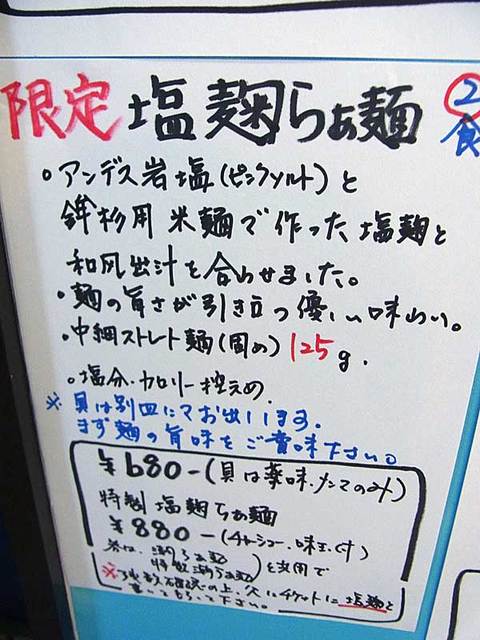 限定 塩麹らぁ麺
②食
○アンデス岩塩(ピンクソルト)と
鉾杉用 米麺で作った塩麹と
和風出汁を合わせました。
・麺の旨さが引き立つ優しい味わい。
・中細ストレート麺(固め)125g.
○塩分・カロリー控えめ.
※具は別皿にてお出しします.
まず麺の旨味をご賞味下さい。
¥680-(具は薬味・メンマのみ)
特製 塩麹らぁ麺
¥880-(チャーシュー・味玉・付)
券は、潮らぁ麺
特製潮らぁ麺 を共用で
の上、チケットに塩麹と
書いてもらって下さい。